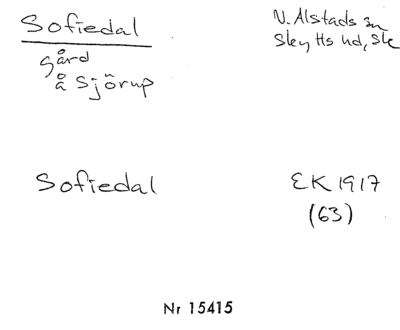 Sofiedal
N. Alstads sn
Skytts hd, Sk
gård
å Sjörup
Sofiedal
EK 1917
(63)
Nr 15415